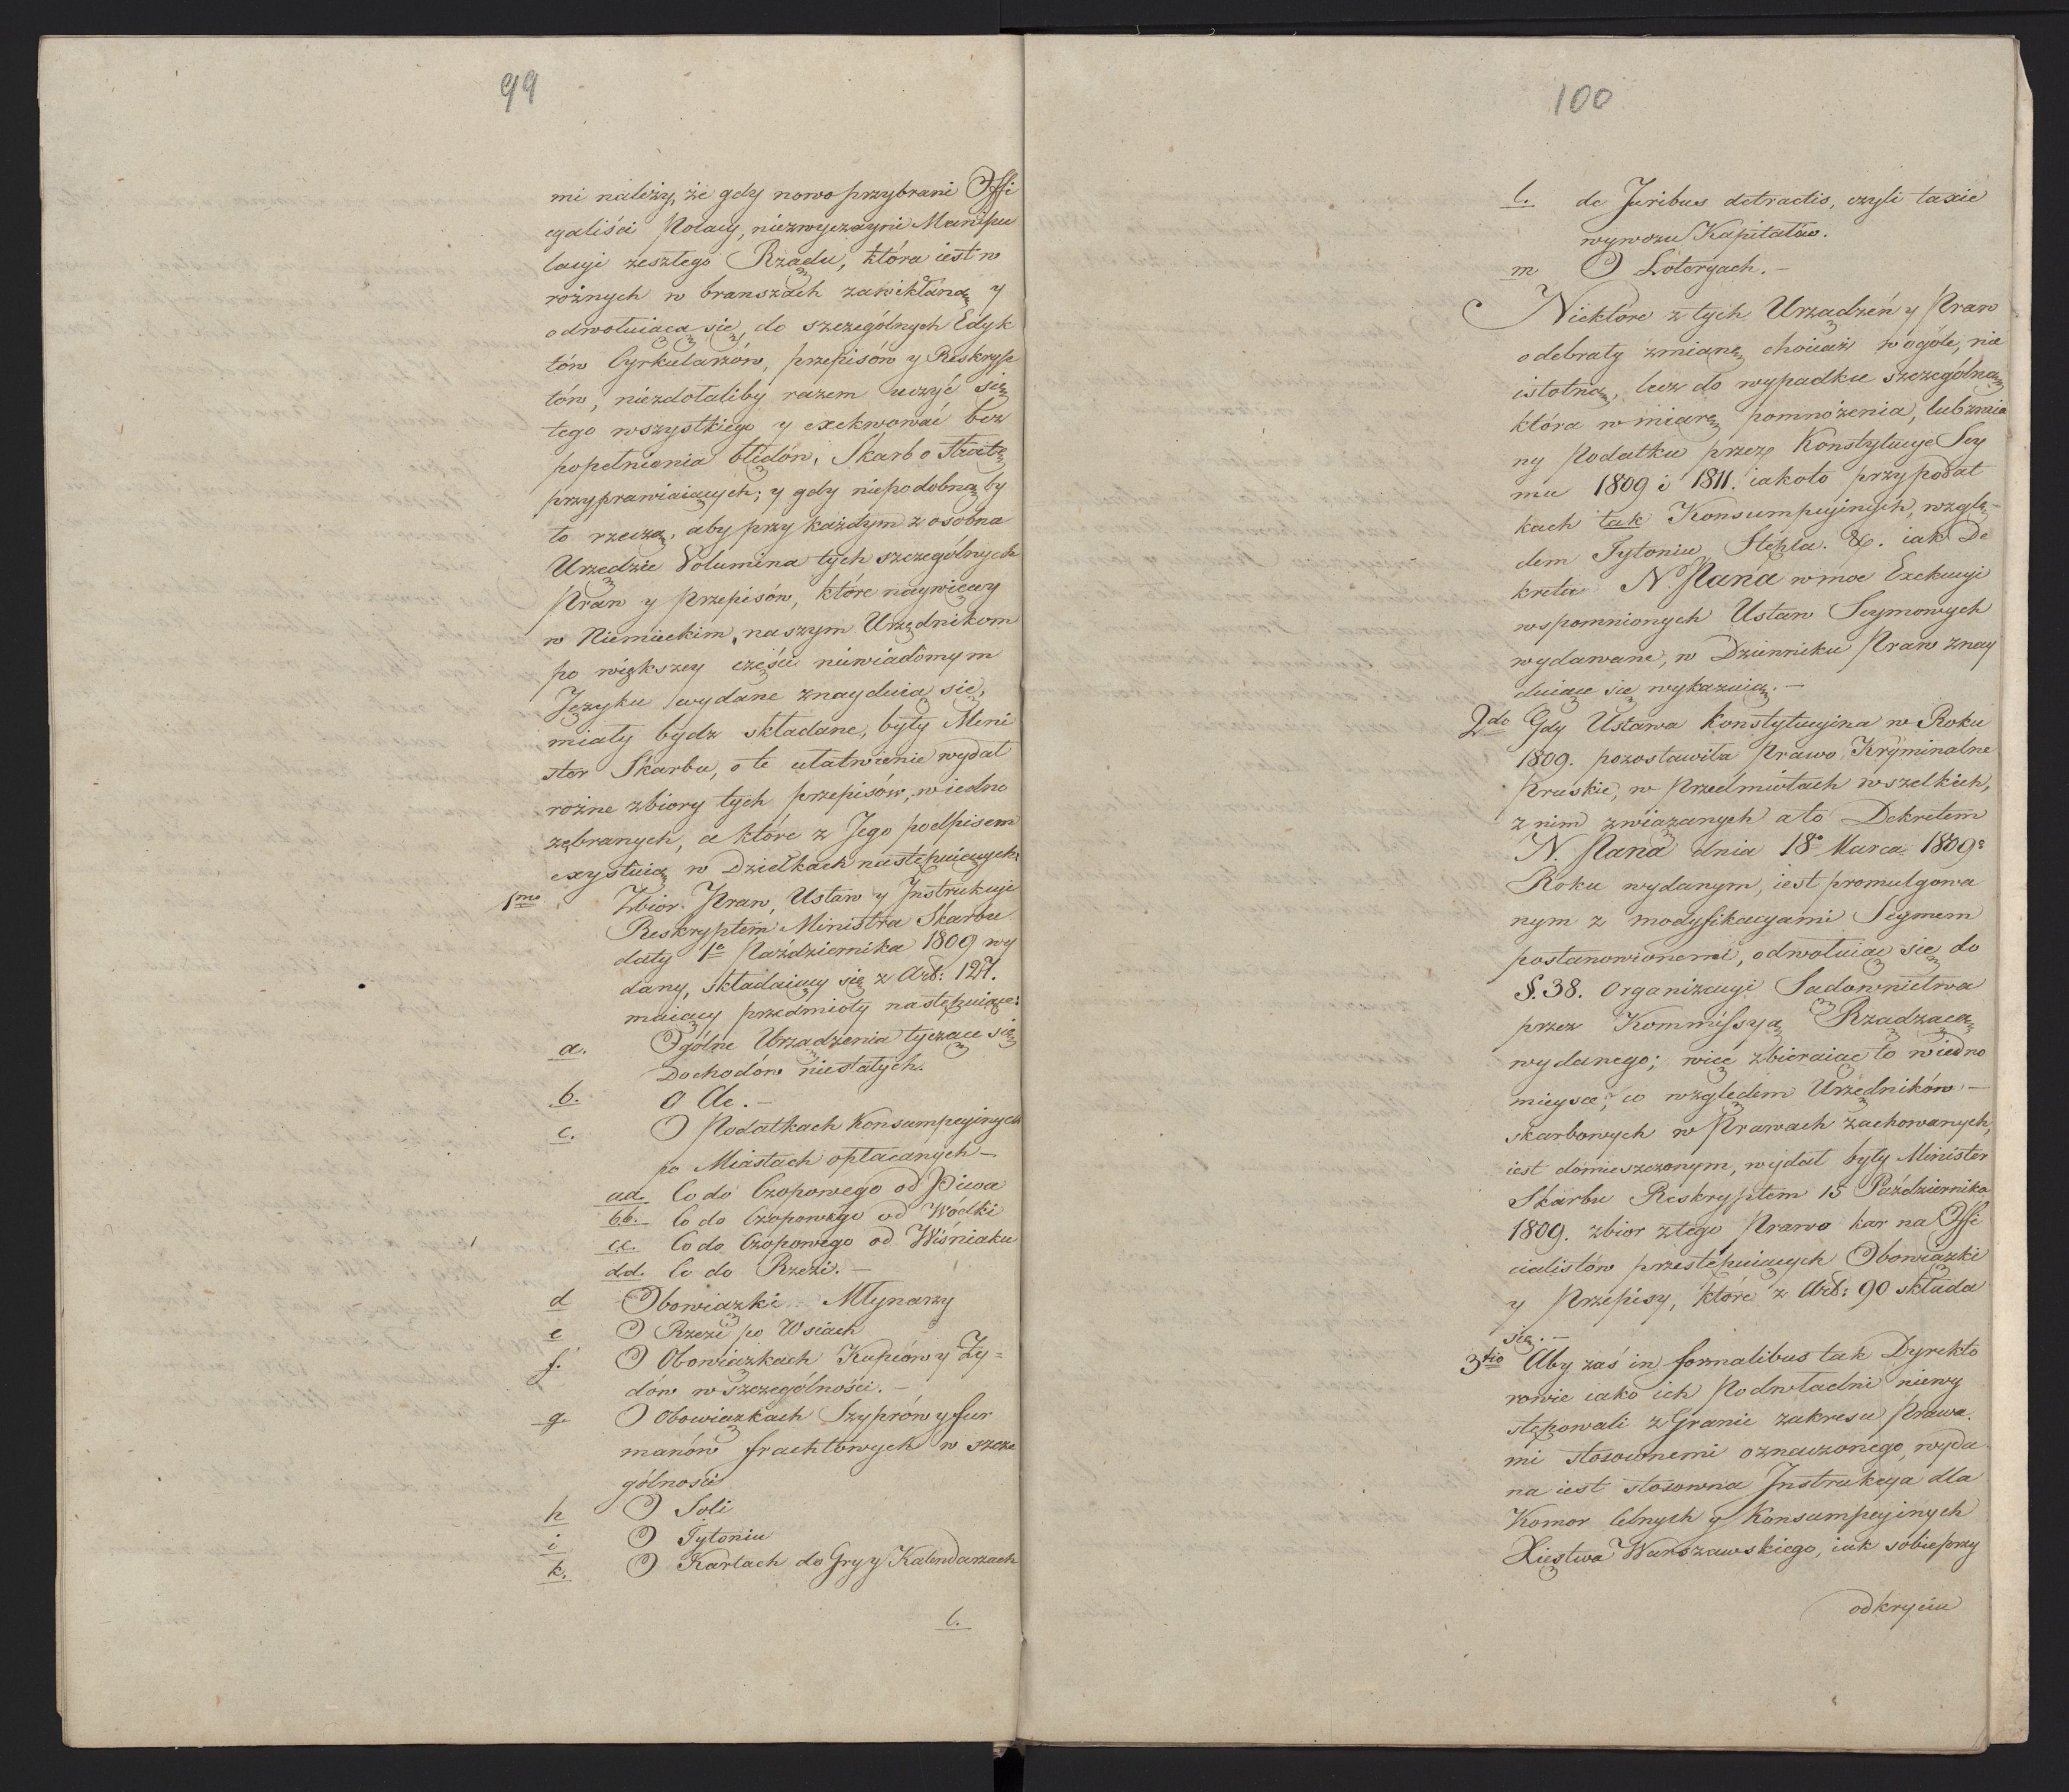 99
mi należy, że gdy nowo przybrani Offi
cyaliści Polacy, niezwyczayni Manipu
lacyi zeszłego Rządu, która iest w
rożnych w branszach zawikłaną y
odwołuiącą się, do szczególnych Edyk
tów Cyrkularzów, przepisów y Reskryp
tów, niezdołaliby razem uczyć się
tego wszystkiego y exekwować bez
popełnienia błędów, Skarb o stratę
przyprawiaiących; y gdy niepodobną by
to rzeczą, aby przy każdym z osobna
Urzędzie Volumina tych szczególnych
Praw y Przepisów, które naywięcey
w Niemieckim, naszym Urzędnikom
po większey części niewiadomym
Języku wydane znayduią się,
miały bydz składane, były Mini
ster Skarbu, o te ułatwienie wydał
rożne zbiory tych przepisów, w iedno
zębranych, a które z Jego podpisem
exystuią w Dziełkach następuiących:
1mo Zbior Praw, Ustaw y Instrukcyi
Reskryptem Ministra Skarbu
daty 1o Października 1809 wy
dany, składaiący się z Art: 127.
maiący przedmioty następuiące:
a. Ogólne Urządzenia tyczące się
Dochodów niestałych.
b. O Cle. –
c. O Podatkach Konsumpcyinych
po Miastach opłacanych –
aa. Co do Czopowego od Piwa
b.b. Co do Czopowego od Wódki
c.c. Co do Czopowego od Wiśniaku
d.d. Co do Rzezi. –
d Obowiązki Młynarzy
e O Rzezi po Wsiach
f. O Obowiązkach Kupców y Ży=
dów w szczególności. –
g. O Obowiązkach Szyprów y fur
manów frachtowych w szcze
gólności
h O Soli
i O Tytoniu
k. O Kartach do Gry y Kalendarzach
l.
100
l. de Juribus detractis, czyli taxie
wywozu Kapitałów.
m O Loteryach. –
Niektóre z tych Urządzeń y Praw
odebrały zmianę chociaż w ogóle, nie
istotną, lecz do wypadku szczególną
która w miarę pomnożenia, lub zmia
ny Podatku przez Konstytucye Sey
mu 1809 i 1811. iakoto przy podat
kach tak Konsumpcyinych, wzglę–
dem Tytoniu, Stępla. &. iak De
kreta N Pana w moc Exekucyi
wspomnionych Ustaw Seymowych
wydawane, w Dzienniku Praw znay
duiące się wykazuią. –
2do Gdy Ustawa Konstytucyina w Roku
1809. pozostawiła Prawo Kryminalne
Pruskie, w Przedmiotach wszelkich,
z nim związanych a to Dekretem
N. Pana dnia 18o Marca 1809o
Roku wydanym, iest promulgowa
nym z modyfikacyami Seymem
postanowionemi, odwołuiąc się do
§. 38. Organizacyi Sądownictwa
przez Kommissyą Rządzącą
wydanego; więc zbieraiąc to w iedno
mieysce, co względem Urzędników –
skarbowych w Prawach zachowanych,
iest domieszczonym, wydał były Minister
Skarbu Reskryptem 15 Października
1809. zbior z tego Prawa kar na Offi
cialistów przestępuiących Obowiązki
y Przepisy, które z Art: 90 składa
się. –
3tio Aby zaś in formalibus tak Dyrekto
rowie iako ich Podwładni niewy
stępowali z Granic zakresu Prawa
mi stosownemi oznaczonego, wyda
na iest stosowna Instrukcya dla
Komor Celnych y Konsumpcyinych
Xięstwa Warszawskiego, iak sobie przy
odkryciu